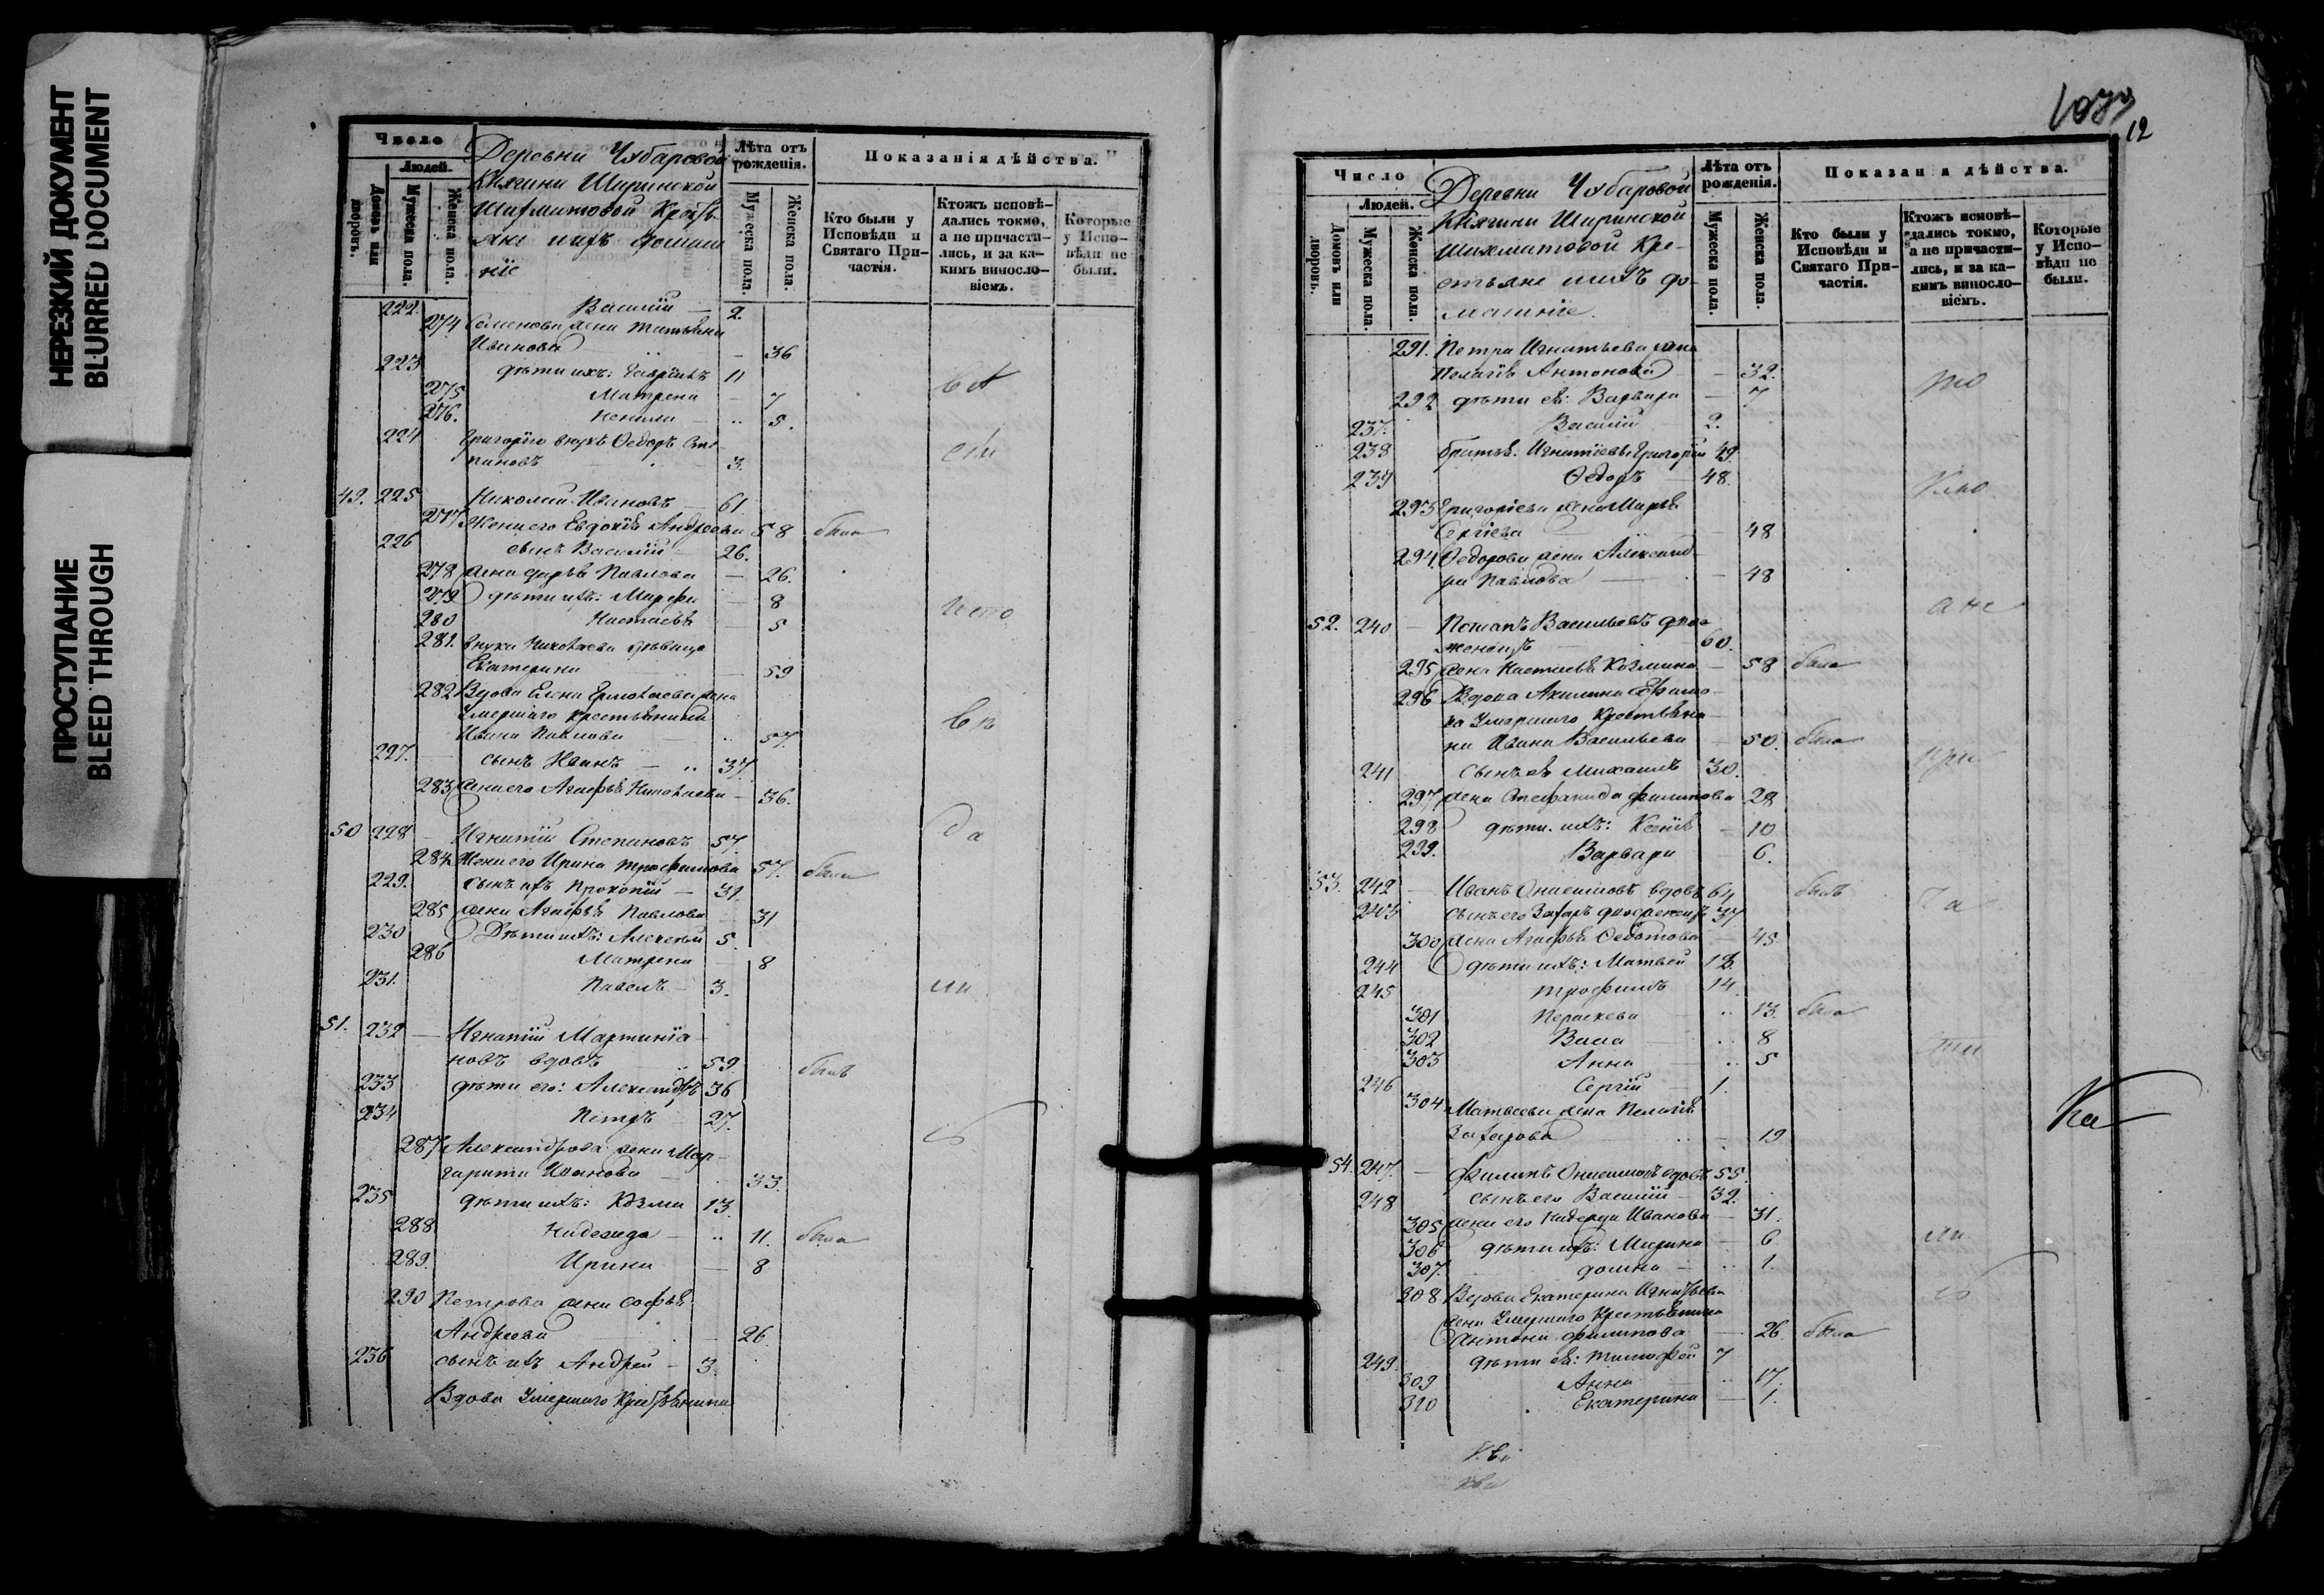 НЕРЕЗКИЙ ДОКУМЕНТ
BLURRED DOCUMENT
ПРОСТУПАНИЕ
BLEED THROUGH
Число
Людей.
Домовъ или дворовъ.
Мужеска пола.
Женска пола.
Деревни Чубаровой
Княгини Ширинской
Шихматовой Крестья
не ихъ домаш
ніе
Лѣта отъ рожденія.
Мужеска пола.
Женска пола.
Показанія дѣйства.
Кто были у Исповѣди и Святаго Причастія.
Ктожъ исповѣдались токмо, а не причастились, и за какимъ винословіемъ.
Которые у Исповѣди не были.
222. Василій — 2.
274 Семенова жена Татьяна
Иванова — 36
223 дѣти ихъ: Гаврiилъ 11
275 Матрена — 7
276. Ненила 5.
224 Григорія внукъ Ѳедоръ Сте
пановъ 3.
49. 225 Николай Ивановъ 61
277 Жена его Евдокія Андреева 58 была
226 сынъ Василій 26.
278 жена Дарья Павлова — 26.
279 дѣти ихъ: Марфа 8
280 Настасья 5
281. внука Николаева дѣвица
Екатерина 59
282 Вдова Елена Ермолаева жена
Умершаго крестьянина
Ивана Павлова 57.
227. сынъ Иванъ — 37.
283 жена его Агафья Николаева — 36.
50 228 — Игнатій Степановъ 57.
284 Жена его Ирина Трофимова 57. была
229. сынъ ихъ Прокопій — 31.
285 жена Агафья Павлова 31
230 Дѣти ихъ: Алексѣй 5.
286 Матрена — 8
231. Павелъ — 3.
51. 232 — Игнатій Мартиніа
новъ вдовъ 59. былъ
233 дѣти его: Александръ 36
234 Петръ 27.
287 Александрова жена Мар
гарита Иванова 33.
235 дѣти ихъ: Козма 13.
288 Надежда — 11. была
289. Ирина — 8
290 Петрова жена Софья
Андреева 26
236 сынъ ихъ Андрей — 3.
Вдова Умершаго Крестьянина
12
Число
Людей.
Домовъ или дворовъ.
Мужеска пола.
Женска пола.
Деревни Чубаровой
Княгини Ширинской
Шихматовой Кре-
стьяне ихъ до-
машніе.
Лѣта отъ рожденія.
Мужеска пола.
Женска пола.
Показанія дѣйства.
Кто были у Исповѣди и Святаго Причастія.
Ктожъ исповѣдались токмо, а не причастились, и за какимъ винословіемъ.
Которые у Исповѣди не были.
291. Петра Игнатьева жена
Пелагія Антонова — 32.
292 дѣти ея: Варвара — 7
237. Василій 2.
238 братья: Игнатіевы Григорій 49.
239 Ѳедоръ 48.
293 Григоріева жена Марья
Сергіева — 48
294. Ѳедорова жена Александ
ра Павлова — 48
52. 240 — Потапъ Васильевъ двое
женецъ 60.
295 жена Настасья Козмина — 58 была
296 Вдова Акилина Ефимо
ва Умершаго Крестьяни
на Ивана Васильева — 50. была
241 сынъ ея Михаилъ 30.
297 жена Степанида Филипова 28
298 дѣти ихъ: Ксенія — 10
299. Варвара 6.
53. 242 — Иванъ Онисимовъ вдовъ 64 былъ
243 сынъ его Захаръ двоеженецъ 37
300 жена Агафья Ѳедотова — 45.
244 дѣти ихъ: Матвей 18.
245 Трофимъ 14.
301 Параскева 13. была
302 Васса 8
303 Анна 5
246 Сергій — 1.
304 Матвеева жена Пелагія
Захарова — 19
54. 247. — Филипъ Онисимовъ вдовъ 55.
248 сынъ его Василій 32.
305 жена его Надежда Иванова — 31.
306 дѣти ихъ: Марина 6
307. Домна — 1.
308 Вдова Екатерина Игнатьева
жена Умершаго Крестьянина
Антона Филипова — 26 была
249. дѣти ея: Тимофей 7
309 Анна 17.
310 Екатерина — 1.